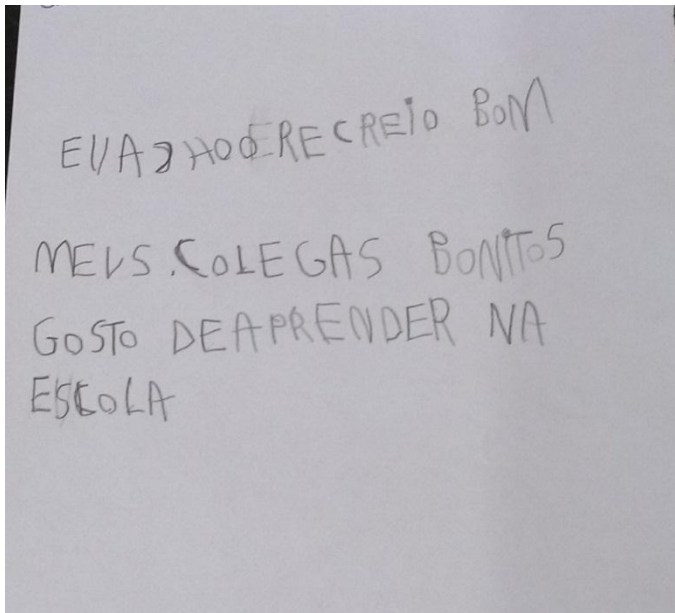 EUAJHOOERECREIO BOM
MEUS.COLEGAS BONITOS
GOSTO DEAPRENDER NA
ESCOLA